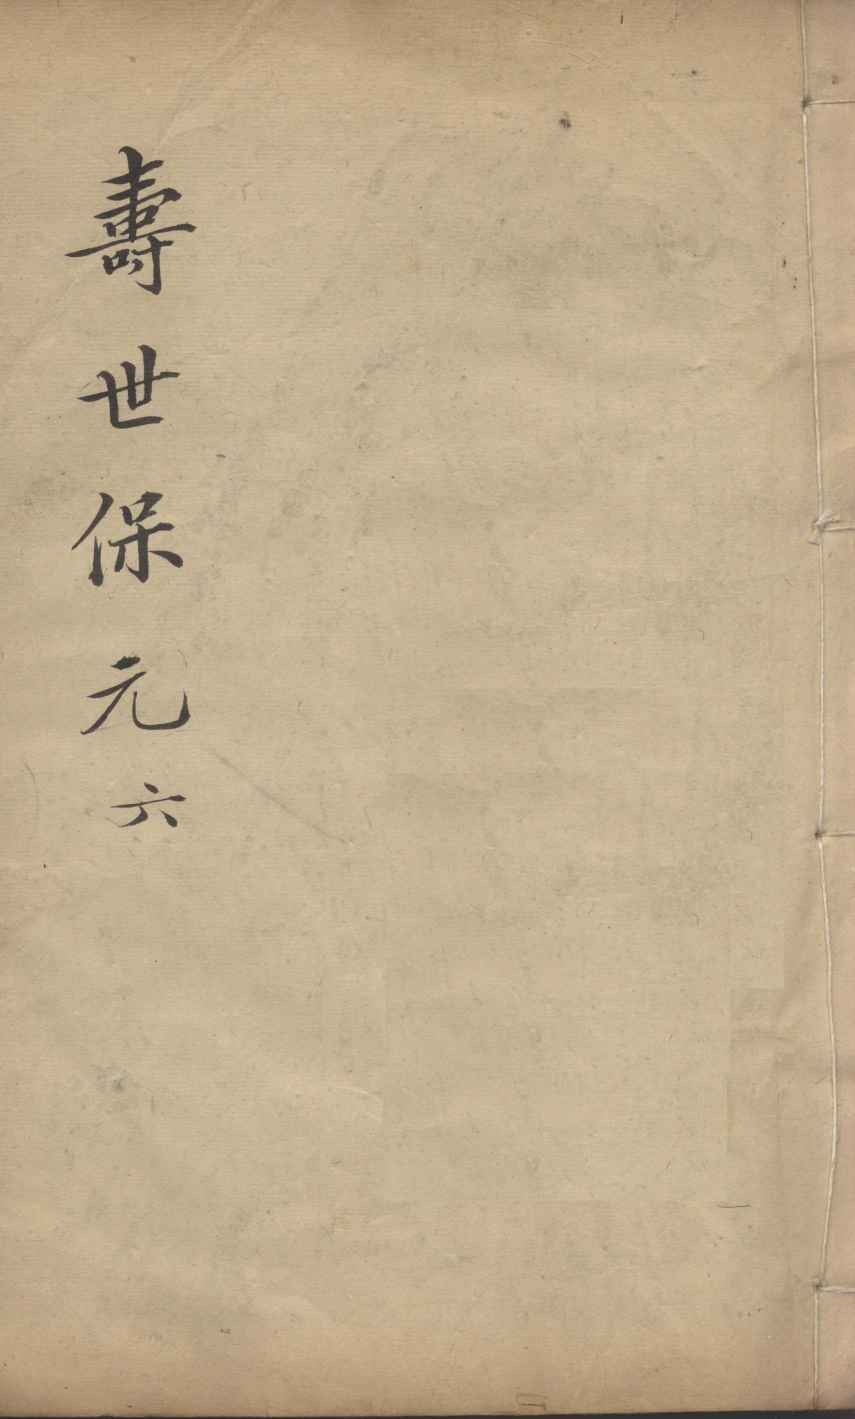 壽世保元六